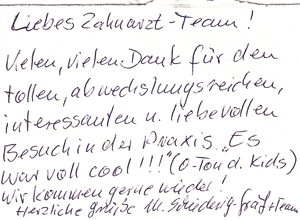 Liebes Zahnarzt-Team!
Vielen, vielen Dank für den
tollen, abwechslungsreichen,
interessanten u. liebevollen
Besuch in der Praxis. „Es
war voll cool!!!" (O-Ton d. Kids)
Wir kommen gerne wieder!
Herzliche Grüße M. -Graf + Team